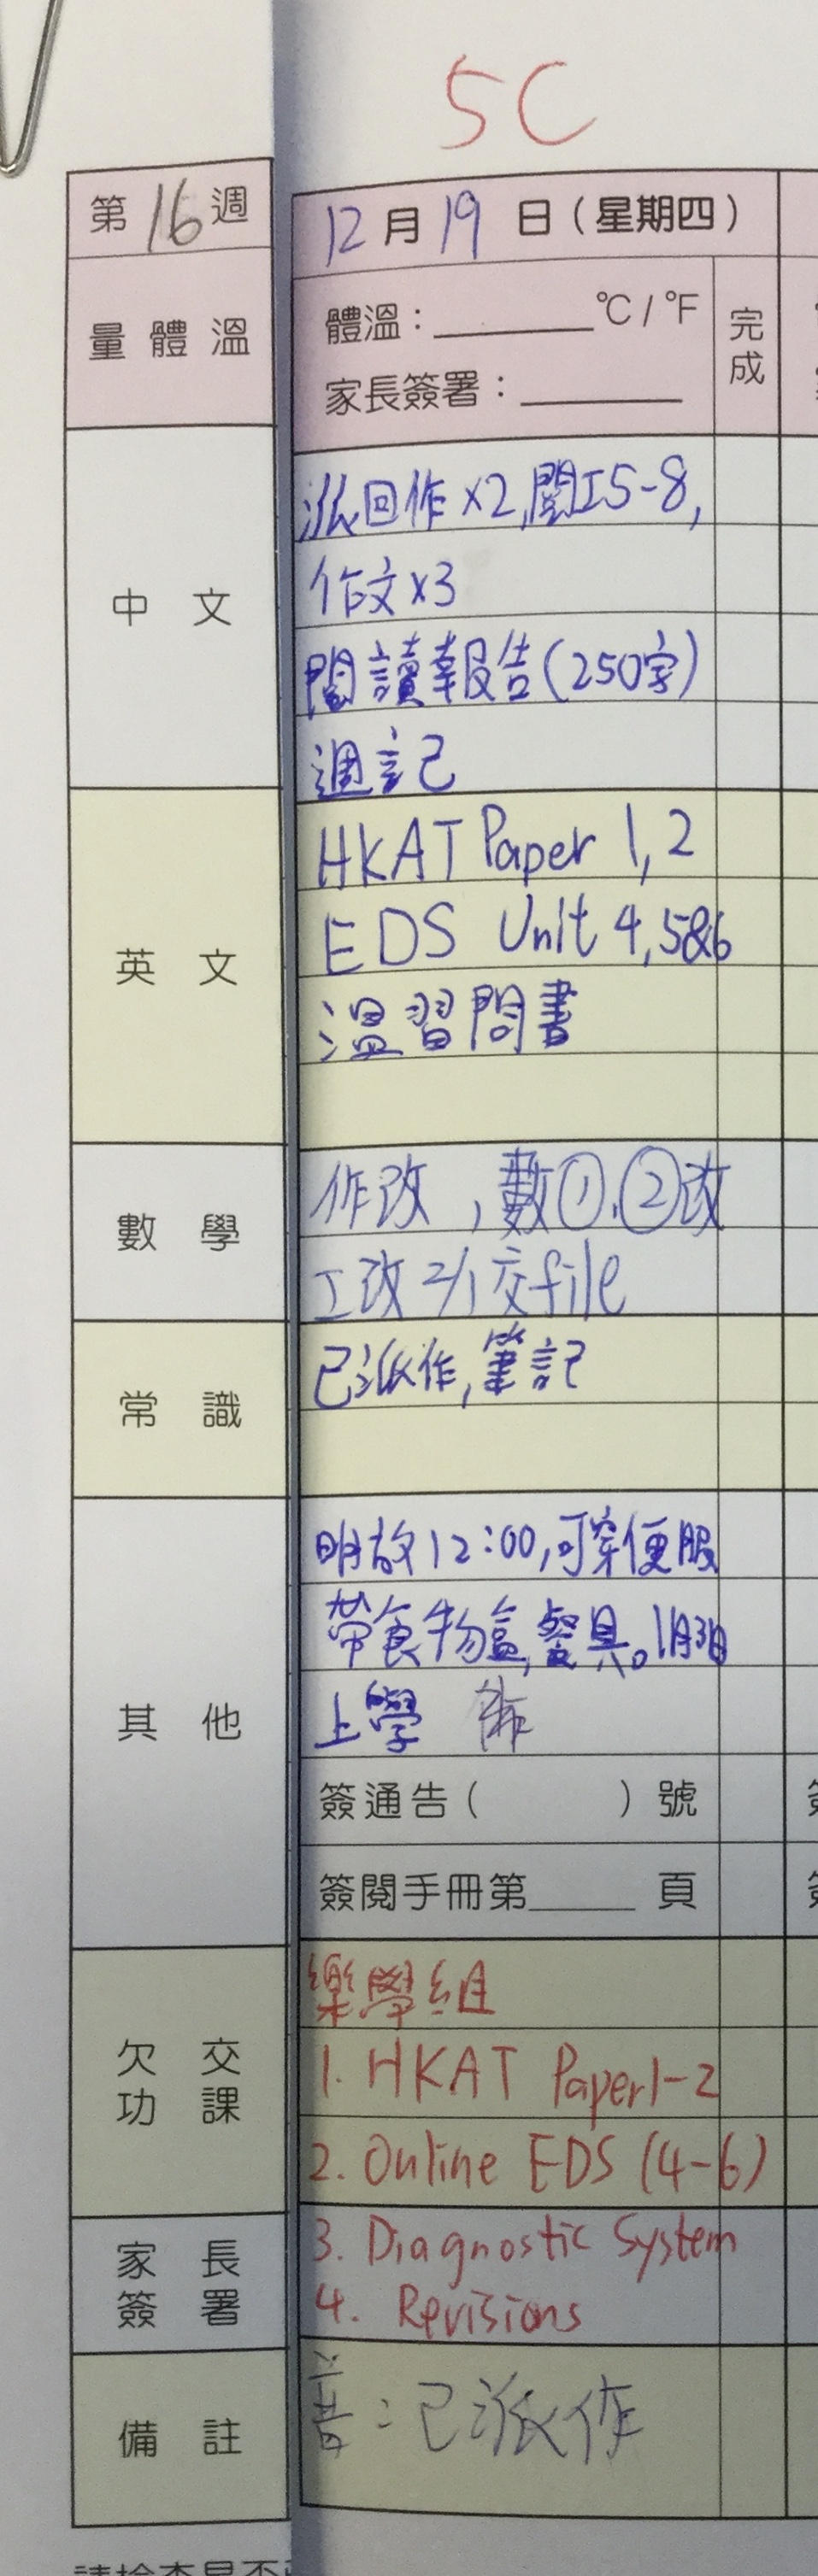 5C
第16週
12月19日（星期四）
量體溫
體溫：______°C/°F
家長簽署：______
完成
中文
派回作x2,閱工5-8,
作文x3
閱讀報告(250字)
週記
英文
HKAT Paper 1,2
EDS Unit 4,5&6
溫習問書
數學
作改,數①,②改
工改2/1交file
常識
已派作,筆記
其他
明放12:00,可穿便服
帶食物盒,餐具。1月3日
上學
簽通告（ ）號
簽閱手冊第______頁
欠交功課
樂學組
1. HKAT Paper1-2
2. Online EDS (4-6)
家長簽署
3. Diagnostic System
4. Revisions
備註
普:已派作